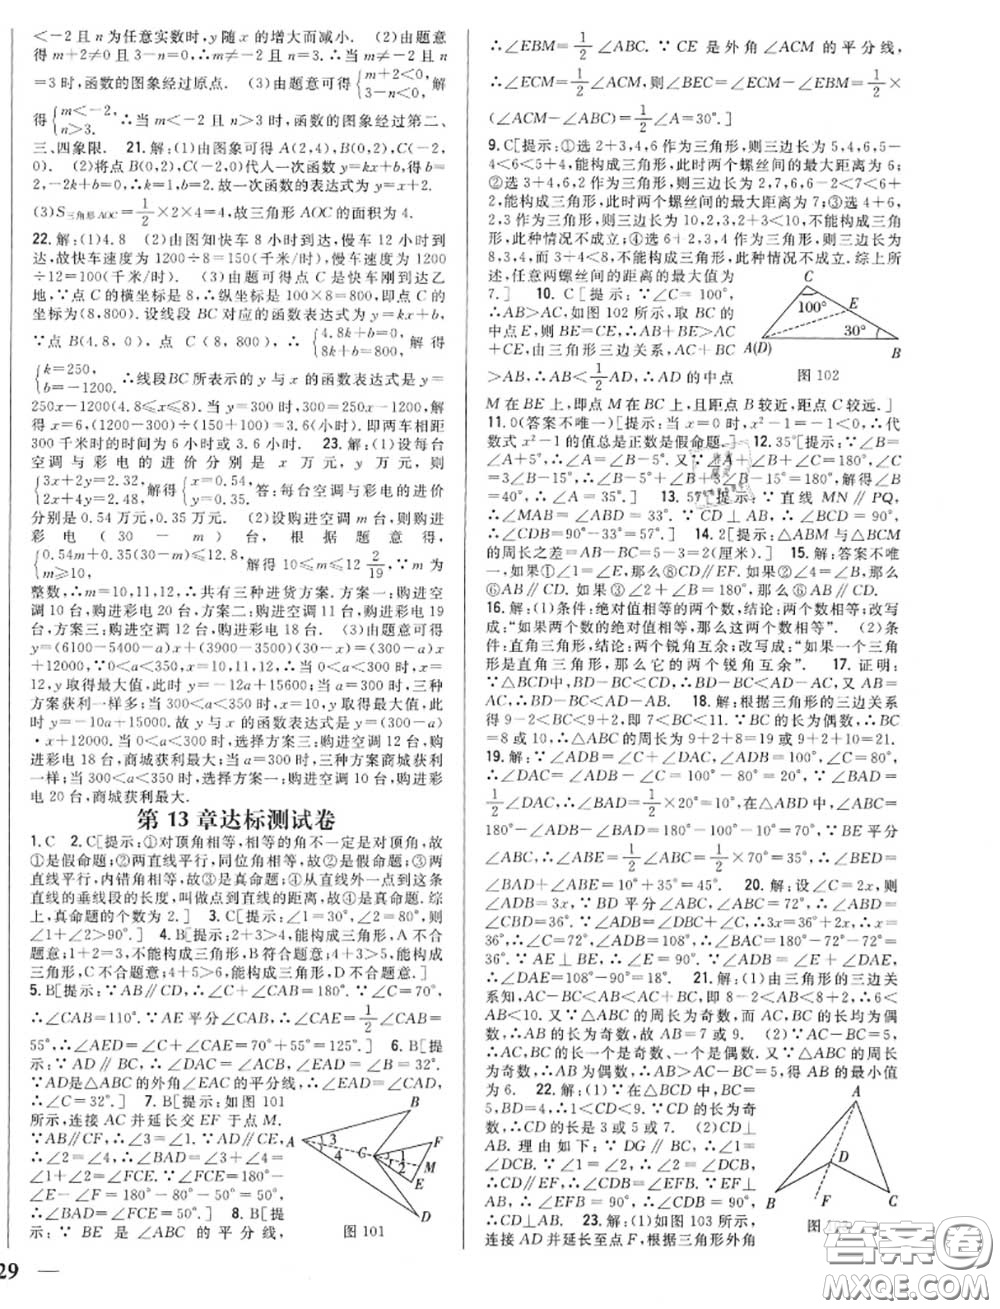 <-2且n为任意实数时,y随x的增大而减小. (2)由题意
得m+2≠0且3-n=0,∴m≠-2且n=3.∴当m≠-2且n
=3时,函数的图象经过原点. (3)由题意可得{m+2<0, 3-n<0. 解
得{m<-2, n>3. ∴当m<-2且n>3时,函数的图象经过第二、
三、四象限. 21.解:(1)由图象可得A(2,4),B(0,2),C(-2,
0). (2)将点B(0,2),C(-2,0)代入一次函数y=kx+b,得b=
2,-2k+b=0,∴k=1. 故一次函数的表达式为y=x+2.
(3)S三角形AOC=1/2×2×4=4,故三角形AOC的面积为4.
22.解:(1)4.8 (2)由图知快车8小时到达,慢车12小时到
达,故快车速度为1200÷8=150(千米/时),慢车速度为1200
÷12=100(千米/时). (3)由题意可得点C是快车刚到达乙
地,∵点C的横坐标是8,∴纵坐标是100×8=800,即点C的
坐标为(8,800). 设线段BC对应的函数表达式为y=kx+b,
∵点B(4.8,0),点C(8,800),∴{4.8k+b=0, 8k+b=800. 解得
{k=250, b=-1200. ∴线段BC所表示的y与x的函数表达式是y=
250x-1200(4.8≤x≤8). 当y=300时,300=250x-1200,解
得x=6,(1200-300)÷(150+100)=3.6(小时). 即两车相距
300千米时的时间为6小时或3.6小时. 23.解:(1)设每台
空调与彩电的进价分别是x万元,y万元,则
{3x+2y=2.32, 2x+4y=2.48, 解得{x=0.54, y=0.35. 答:每台空调与彩电的进价
分别是0.54万元,0.35万元. (2)设购进空调m台,则购进
彩电(30-m)台,根据题意得,
{0.54m+0.35(30-m)≤12.8, m≥10, 解得10≤m≤12 2/19,∵m为
整数,∴m=10,11,12,∴共有三种进货方案. 方案一:购进空
调10台,购进彩电20台,方案二:购进空调11台,购进彩电19
台,方案三:购进空调12台,购进彩电18台. (3)由题意可得
y=(6100-5400-a)x+(3900-3500)(30-x)=(300-a)x
+12000. ∵0<a<350,x=10,11,12,∴当0<a<300时,x=
12,y取得最大值,此时y=-12a+15600;当a=300时,三种
方案获利一样多;当300<a<350时,x=10,y取得最大值,此
时y=-10a+15000. 故y与x的函数表达式是y=(300-a)
·x+12000. 当0<a<300时,选择方案三:购进空调12台,购
进彩电18台,商城获利最大;当a=300时,三种方案商城获利
一样;当300<a<350时,选择方案一:购进空调10台,购进彩
电20台,商城获利最大.
第13章达标测试卷
1.C 2.C[提示:①对顶角相等,相等的角不一定是对顶角,故
①是假命题;②两直线平行,同位角相等,故②是假命题;③两
直线平行,内错角相等,故③是真命题;④从直线外一点到这条
直线的垂线段的长度,叫做点到直线的距离,故④是真命题.综
上,真命题的个数为2.] 3.C[提示:∠1=30°,∠2=80°,则
∠1+∠2>90°.] 4.B[提示:2+3>4,能构成三角形,A不合
题意;1+2=3,不能构成三角形,B符合题意;4+3>5,能构成
三角形,C不合题意;4+5>6,能构成三角形,D不合题意.]
5.B[提示:∵AB∥CD,∴∠C+∠CAB=180°.∵∠C=70°,
∴∠CAB=110°.∵AE平分∠CAB,∴∠CAE=1/2∠CAB=
55°,∴∠AED=∠C+∠CAE=70°+55°=125°.] 6.B[提
示:∵AD∥BC,∴∠DAC=∠ACB,∠EAD=∠B=32°.
∵AD是△ABC的外角∠EAC的平分线,∴∠EAD=∠CAD,
∴∠C=32°.] 7.B[提示:如图101
所示,连接AC并延长交EF于点M.
∵AB∥CF,∴∠3=∠1.∵AD∥CE,
∴∠2=∠4,∴∠BAD=∠3+∠4=
∠1+∠2=∠FCE.∵∠FCE=180°-
∠E-∠F=180°-80°-50°=50°,
∴∠BAD=∠FCE=50°.] 8.B[提
示:∵BE是∠ABC的平分线,
A
B
3
4
C
1
2
F
M
E
D
图101
29
∴∠EBM=1/2∠ABC.∵CE是外角∠ACM的平分线,
∴∠ECM=1/2∠ACM,则∠BEC=∠ECM-∠EBM=1/2×
(∠ACM-∠ABC)=1/2∠A=30°.]
9.C[提示:①选2+3,4,6作为三角形,则三边长为5,4,6,5-
4<6<5+4,能构成三角形,此时两个螺丝间的最大距离为6;
②选3+4,6,2作为三角形,则三边长为2,7,6,6-2<7<6+
2,能构成三角形,此时两个螺丝间的最大距离为7;③选4+
6,2,3作为三角形,则三边长为10,2,3,2+3<10,不能构成三
角形,此种情况不成立;④选6+2,3,4作为三角形,则三边长为
8,3,4,而3+4<8,不能构成三角形,此种情况不成立.综上所
述,任意两螺丝间的距离的最大值为
7.] 10.C[提示:∵∠C=100°,
∴AB>AC,如图102所示,取BC的
中点E,则BE=CE,∴AB+BE>AC
+CE,由三角形三边关系,AC+BC
>AB,∴AB<1/2AD,∴AD的中点
C
100°
E
30°
A(D)
B
图102
M在BE上,即点M在BC上,且距点B较近,距点C较远.]
11.0(答案不唯一)[提示:当x=0时,x²-1=-1<0,∴代
数式x²-1的值总是正数是假命题.] 12.35°[提示:∵∠B=
∠A+5°,∴∠A=∠B-5°.又∵∠A+∠B+∠C=180°,∠C
=3∠B-5°,∴∠B-5°+∠B+3∠B-5°=180°,解得∠B
=40°,∴∠A=35°.] 13.57°[提示:∵直线MN∥PQ,
∴∠MAB=∠ABD=33°.∵CD⊥AB,∴∠BCD=90°,
∴∠CDB=90°-33°=57°.] 14.2[提示:△ABM与△BCM
的周长之差=AB-BC=5-3=2(厘米).] 15.解:答案不唯
一,如果①∠1=∠E,那么⑤CD∥EF.如果②∠4=∠B,那么
⑥AB∥CD.如果③∠2+∠B=180°,那么⑥AB∥CD.
16.解:(1)条件:绝对值相等的两个数,结论:两个数相等;改写
成:“如果两个数的绝对值相等,那么这两个数相等”. (2)条
件:直角三角形,结论:两个锐角互余;改写成:“如果一个三角
形是直角三角形,那么它的两个锐角互余”. 17.证明:
∵△BCD中,BD-BC<CD,∴BD-BC<AD-AC,又AB=
AC,∴BD-AB<AD-AB. 18.解:根据三角形的三边关系
得9-2<BC<9+2,即7<BC<11.∵BC的长为偶数,∴BC
=8或10,∴△ABC的周长为9+2+8=19或9+2+10=21.
19.解:∵∠ADB=∠C+∠DAC,∠ADB=100°,∠C=80°,
∴∠DAC=∠ADB-∠C=100°-80°=20°.∵∠BAD=
1/2∠DAC,∴∠BAD=1/2×20°=10°,在△ABD中,∠ABC=
180°-∠ADB-∠BAD=180°-100°-10°=70°.∵BE平分
∠ABC,∴∠ABE=1/2∠ABC=1/2×70°=35°,∴∠BED=
∠BAD+∠ABE=10°+35°=45°. 20.解:设∠C=2x,则
∠ADB=3x,∵BD平分∠ABC,∠ABC=∠C,∴∠ABD=
∠CBD=36°.∵∠ADB=∠DBC+∠C,∴3x=36°+2x,∴x=
36°,∴∠C=72°,∠ADB=108°,∴∠BAC=72°,∴∠ABC=
∠C=72°,∵AE⊥BE,∴∠E=90°.∵∠ADB=∠E+∠DAE,
∴∠DAE=108°-90°=18°. 21.解:(1)由三角形的三边关
系知,AC-BC<AB<AC+BC,即8-2<AB<8+2,∴6<
AB<10.又∵△ABC的周长为奇数,而AC,BC的长均为偶
数,∴AB的长为奇数,故AB=7或9. (2)∵AC-BC=5,
∴AC,BC的长一个是奇数、一个是偶数.又∵△ABC的周长
为奇数,∴AB的长为偶数.∵AB>AC-BC=5,得AB的最小值
为6. 22.解:(1)∵在△BCD中,BC=
5,BD=4,∴1<CD<9.∵CD的长为奇
数,∴CD的长是3或5或7. (2)CD⊥
AB.理由如下:∵DG∥BC,∴∠1=
∠DCB.∵∠1=∠2,∴∠2=
∠DCB,∴CD∥EF.∵EF⊥
AB,∴∠EFB=90°,∴∠CDB=90°,
∴CD⊥AB. 23.解:(1)如图103所示,
连接AD并延长至点F,根据三角形外角
A
D
F
B
C
答案圈
MXQE.COM